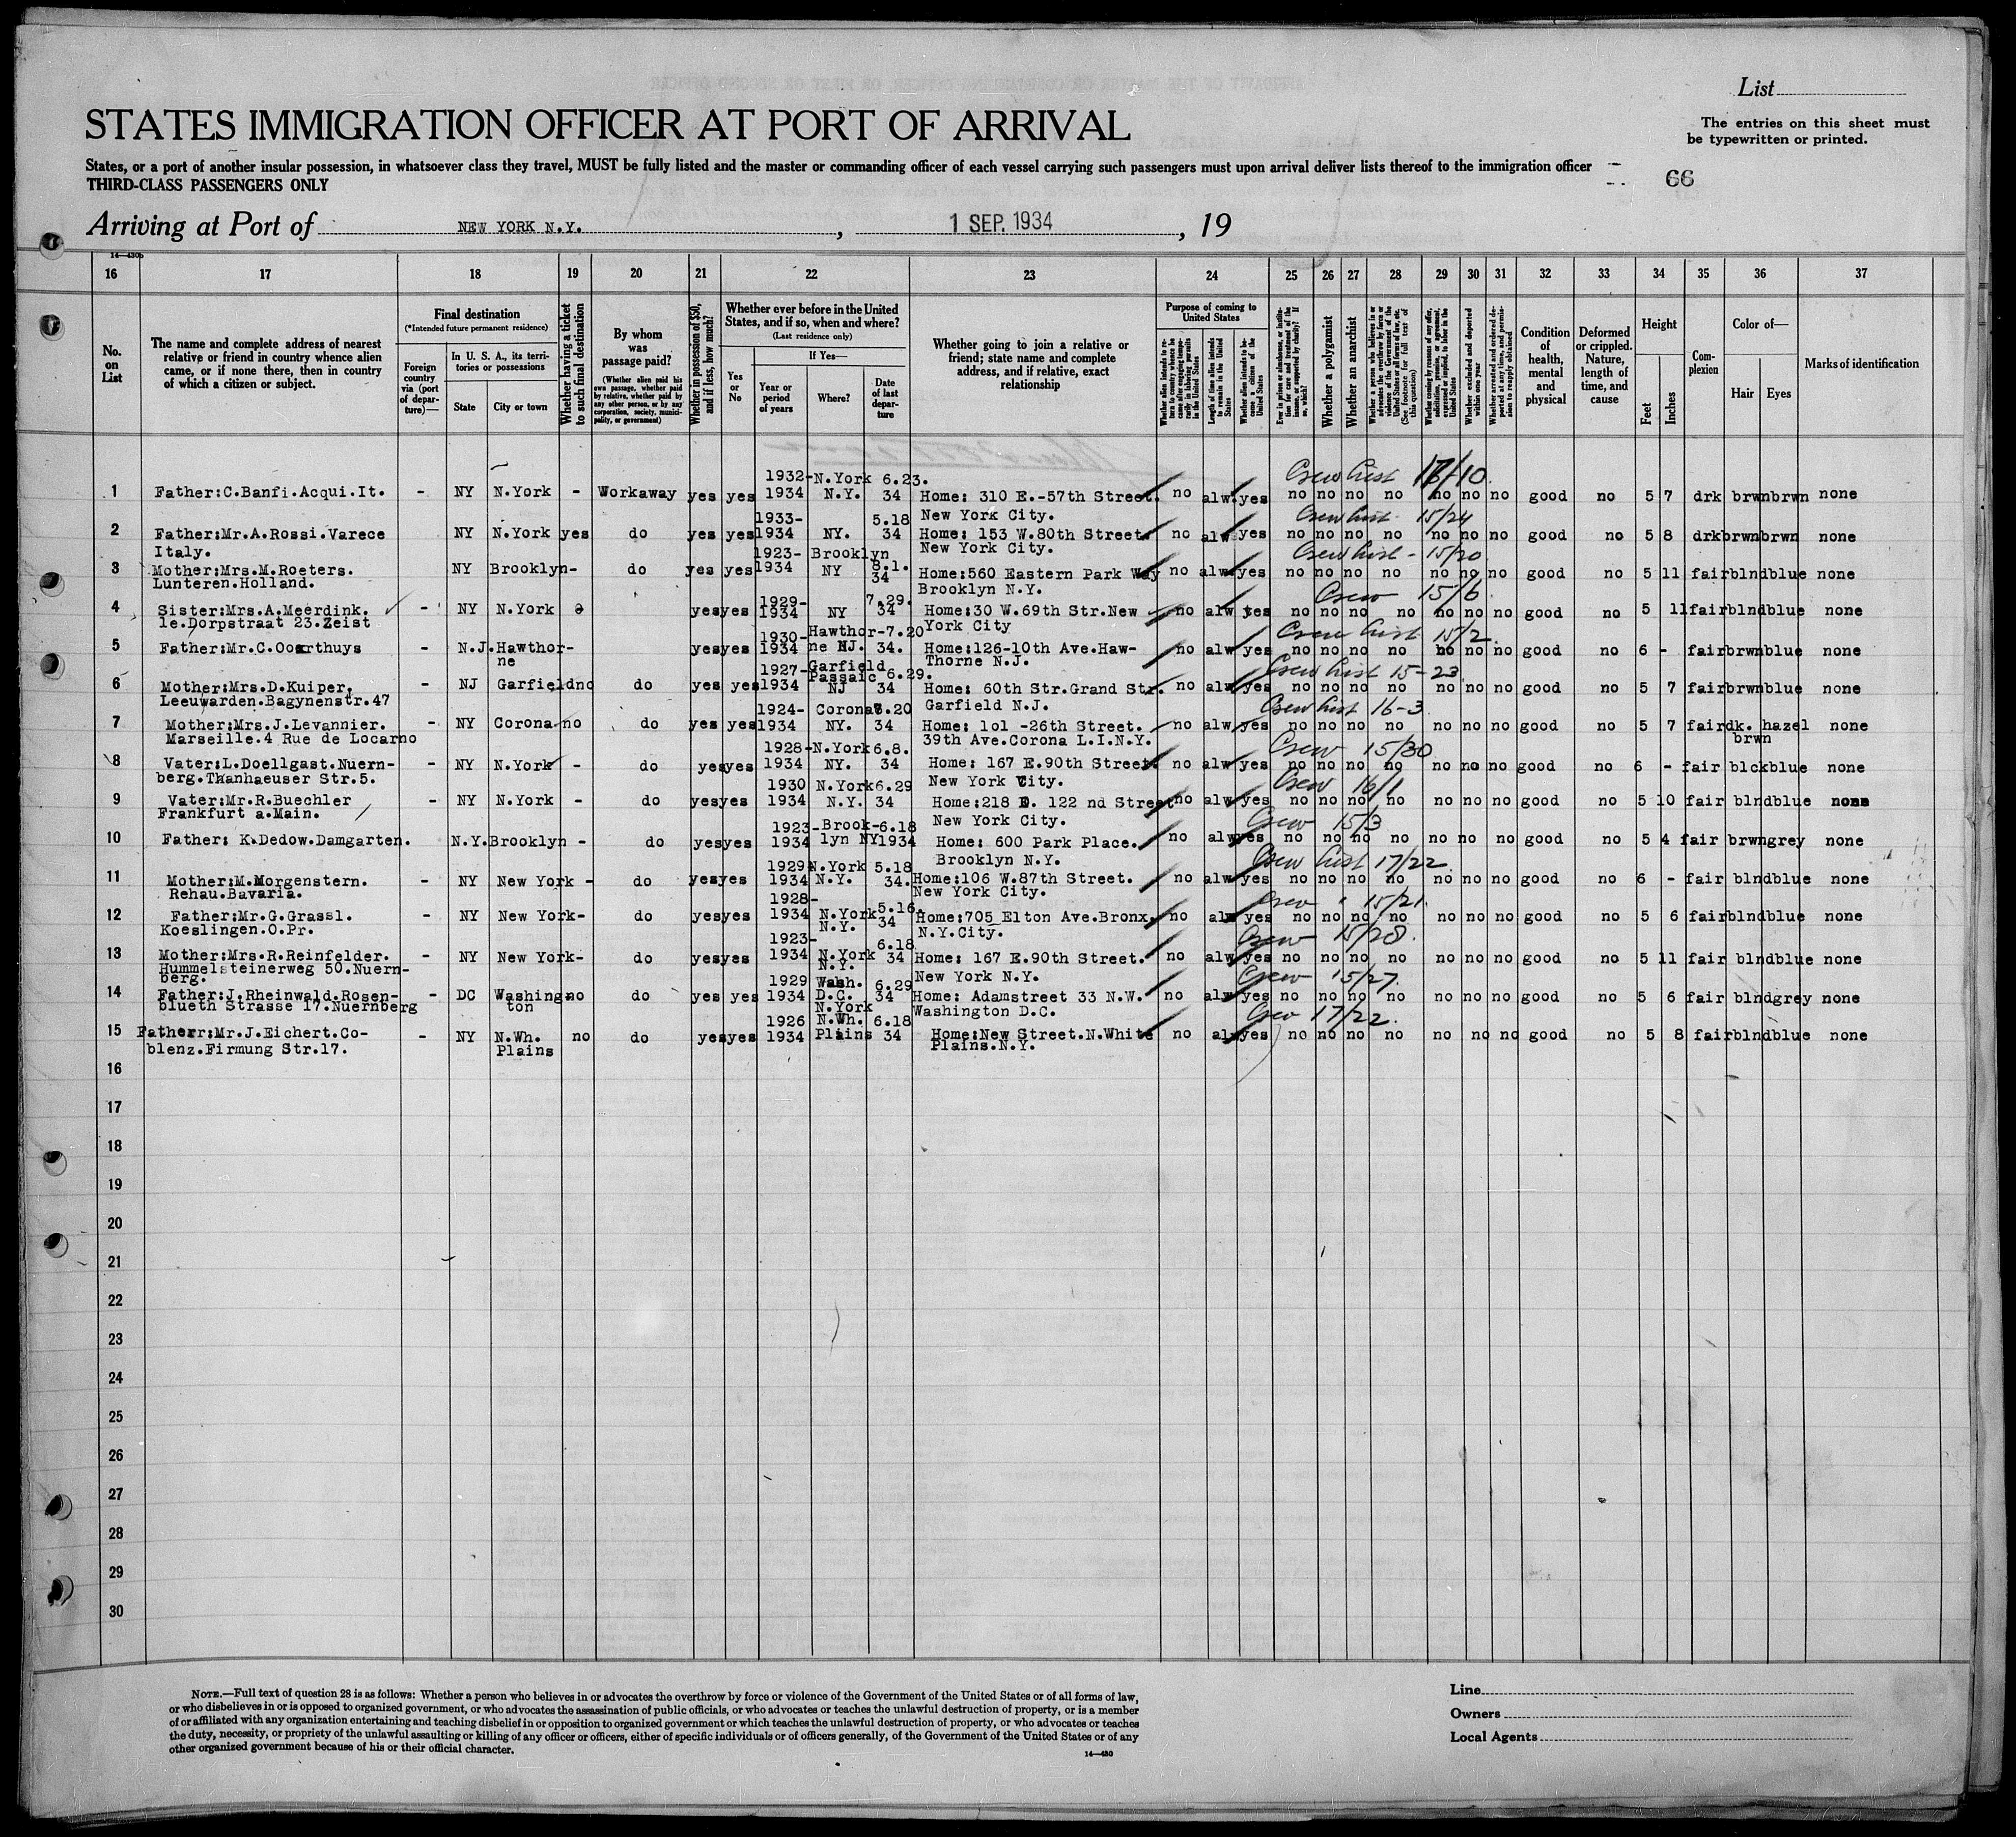 List
STATES IMMIGRATION OFFICER AT PORT OF ARRIVAL
The entries on this sheet must
be typewritten or printed.
States, or a port of another insular possession, in whatsoever class they travel, MUST be fully listed and the master or commanding officer of each vessel carrying such passengers must upon arrival deliver lists thereof to the immigration officer
THIRD-CLASS PASSENGERS ONLY
66
Arriving at Port of NEW YORK N.Y. , 1 SEP. 1934 , 19
14—430b
16 17 18 19 20 21 22 23 24 25 26 27 28 29 30 31 32 33 34 35 36 37
No. on List
The name and complete address of nearest relative or friend in country whence alien came, or if none there, then in country of which a citizen or subject.
Final destination
(*Intended future permanent residence)
Foreign country via (port of departure)—
In U. S. A., its territories or possessions
State City or town
Whether having a ticket to such final destination
By whom was passage paid?
(Whether alien paid his own passage, whether paid by relative, whether paid by any other person, or by any corporation, society, municipality, or government)
Whether in possession of $50, and if less, how much?
Whether ever before in the United States, and if so, when and where?
(Last residence only)
Yes or No
If Yes—
Year or period of years Where? Date of last departure
Whether going to join a relative or friend; state name and complete address, and if relative, exact relationship
Purpose of coming to United States
Whether alien intends to return to country whence he came after engaging temporarily in laboring pursuits in the United States
Length of time alien intends to remain in the United States
Whether alien intends to become a citizen of the United States
Ever in prison or almshouse, or institution for care and treatment of the insane, or supported by charity? If so, which?
Whether a polygamist
Whether an anarchist
Whether a person who believes in or advocates the overthrow by force or violence of the Government of the United States or all forms of law, etc. (See footnote for full text of this question)
Whether coming by reason of any offer, solicitation, promise, or agreement, expressed or implied, to labor in the United States
Whether excluded and deported within one year
Whether arrested and ordered deported at any time, and permission to reapply obtained
Condition of health, mental and physical
Deformed or crippled. Nature, length of time, and cause
Height
Feet Inches
Complexion
Color of—
Hair Eyes
Marks of identification
Crew List 16/10
1 Father:C.Banfi.Acqui.It. - NY N.York - Workaway yes yes 1932-1934 N.York N.Y. 6.23.34 Home: 310 E.-57th Street. New York City. no alw. yes no no no no no no no good no 5 7 drk brwn brwn none
Crew List 15/24
2 Father:Mr.A.Rossi.Varece Italy. NY N.York yes do yes yes 1933-1934 NY. 5.18 34 Home: 153 W.80th Street. New York City. no alw yes no no no no no no no good no 5 8 drk brwn brwn none
Crew List - 15/20
3 Mother:Mrs.M.Roeters. Lunteren.Holland. NY Brooklyn - do yes yes 1923-1934 Brooklyn NY 8.1.34 Home:560 Eastern Park Way Brooklyn N.Y. no alw yes no no no no no no no good no 5 11 fair blnd blue none
Crew 15/6
4 Sister:Mrs.A.Meerdink. 1e.Dorpstraat 23.Zeist - NY N.York yes yes 1929-1934 NY 7.29.34 Home:30 W.69th Str.New York City no alw yes no no no no no no no good no 5 11 fair blnd blue none
Crew List 15/2
5 Father:Mr.C.Oosrthuys - N.J. Hawthorne yes yes 1930-1934 Hawthorne NJ. 7.20 34. Home:126-10th Ave.Haw-Thorne N.J. no alw yes no no no no no no no good no 6 - fair brwn blue none
Crew List 15-23
6 Mother:Mrs.D.Kuiper. Leeuwarden.Bagynenstr.47 - NJ Garfield no do yes yes 1927-1934 Garfield Passaic NJ 6.29.34 Home: 60th Str.Grand Str. Garfield N.J. no alw yes no no no no no no no good no 5 7 fair brwn blue none
Crew List 16-3
7 Mother:Mrs.J.Levannier. Marseille.4 Rue de Locarno - NY Corona no do yes yes 1924-1934 Corona NY. 8.20 34 Home: 1o1 -26th Street. 39th Ave.Corona L.I.N.Y. no alw yes no no no no no no no good no 5 7 fair dk. brwn hazel none
Crew 15/30
8 Vater:L.Doellgast.Nuernberg.Thanhaeuser Str.5. - NY N.York - do yes yes 1928-1934 N.York NY. 6.8.34 Home: 167 E.90th Street. New York City. no alw yes no no no no no no no good no 6 - fair blck blue none
Crew 16/1
9 Vater:Mr.R.Buechler Frankfurt a.Main. - NY N.York - do yes yes 1930 1934 N.York N.Y. 6.29 34 Home:218 E. 122 nd Street New York City. no alw yes no no no no no no no good no 5 10 fair blnd blue none
Crew 15/3
10 Father: K.Dedow.Damgarten. N.Y. Brooklyn - do yes yes 1923-1934 Brooklyn NY 6.18 1934 Home: 600 Park Place. Brooklyn N.Y. no alw yes no no no no no no no good no 5 4 fair brwn grey none
Crew List 17/22
11 Mother:M.Morgenstern. Rehau.Bavaria. - NY New York - do yes yes 1929 1934 N.York N.Y. 5.18 34. Home:106 W.87th Street. New York City. no alw yes no no no no no no no good no 6 - fair blnd blue none
Crew " 15/21
12 Father:Mr.G.Grassl. Koeslingen.O.Pr. - NY New York - do yes yes 1928-1934 N.York N.Y. 5.16.34 Home:705 Elton Ave.Bronx. N.Y.City. no alw yes no no no no no no no good no 5 6 fair blnd blue none
Crew 15/28.
13 Mother:Mrs.R.Reinfelder. Hummelsteinerweg 50.Nuernberg. - NY New York - do yes yes 1923-1934 N.York N.Y. 6.18 34 Home: 167 E.90th Street. New York N.Y. no alw yes no no no no no no no good no 5 11 fair blnd blue none
Crew 15/27.
14 Father:J.Rheinwald.Rosenblueth Strasse 17.Nuernberg - DC Washington no do yes yes 1929 1934 Wash. D.C. 6.29 34 Home: Adamstreet 33 N.W. Washington D.C. no alw yes no no no no no no no good no 5 6 fair blnd grey none
Crew 17/22.
15 Father:Mr.J.Eichert.Coblenz.Firmung Str.17. - NY N.Wh. Plains no do yes yes 1926 1934 N.York N.Wh. Plains 6.18 34 Home:New Street.N.White Plains.N.Y. no alw yes no no no no no no no good no 5 8 fair blnd blue none
16
17
18
19
20
21
22
23
24
25
26
27
28
29
30
NOTE.—Full text of question 28 is as follows: Whether a person who believes in or advocates the overthrow by force or violence of the Government of the United States or of all forms of law,
or who disbelieves in or is opposed to organized government, or who advocates the assassination of public officials, or who advocates or teaches the unlawful destruction of property, or is a member
of or affiliated with any organization entertaining and teaching disbelief in or opposition to organized government or which teaches the unlawful destruction of property, or who advocates or teaches
the duty, necessity, or propriety of the unlawful assaulting or killing of any officer or officers, either of specific individuals or of officers generally, of the Government of the United States or of any
other organized government because of his or their official character.
14—430
Line
Owners
Local Agents